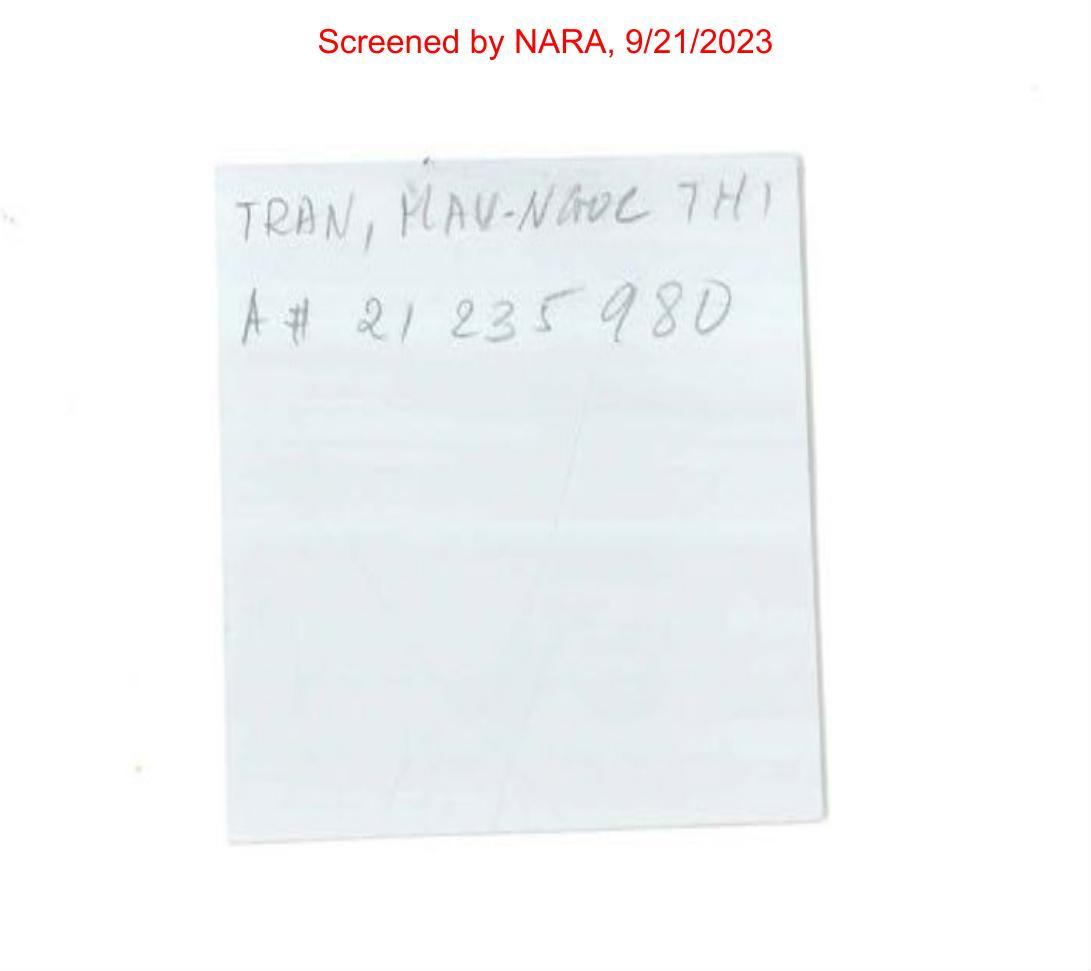 Screened by NARA, 9/21/2023
TRAN, MAU-NGOC THI
A# 21 235 980